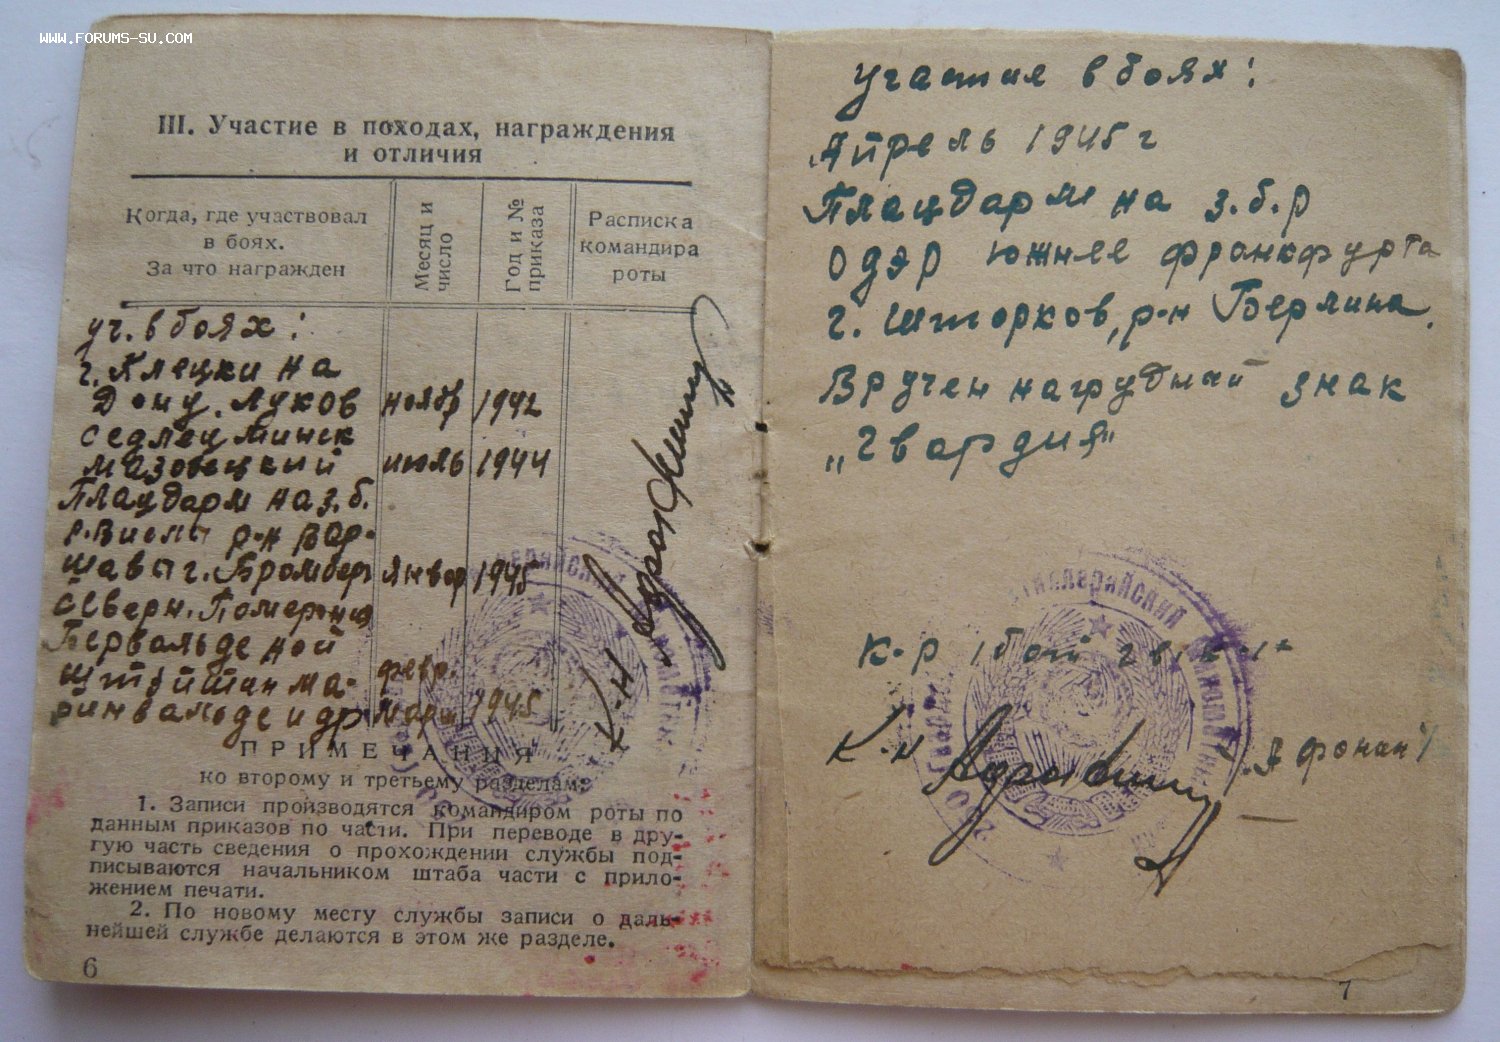 WWW.FORUMS-SU.COM
III. Участие в походах, награждения
и отличия
Когда, где участвовал
в боях.
За что награжден
Месяц и
число
Год и №
приказа
Расписка
командира
роты
уч. в боях:
г. Клецки на
Дону. Луков
Седлец Минск
Мазовецкий
Плацдарм на з.б.
р. Вислы р-н Вар-
шавы г. Бромберг
северн. Померания
Бервальде ной
Штеттин Ма-
ринвальде и др
ноябр 1942
июль 1944
январ 1945
февр.
март 1945
К-н
ПРИМЕЧАНИЯ
ко второму и третьему разделам:
1. Записи производятся командиром роты по
данным приказов по части. При переводе в дру-
гую часть сведения о прохождении службы под-
писываются начальником штаба части с прило-
жением печати.
2. По новому месту службы записи о даль-
нейшей службе делаются в этом же разделе.
6
участие в боях:
Апрель 1945 г
Плацдарм на з.б.р
Одэр южнее Франкфурта
г. Шторков, р-н Берлина.
Вручен нагрудный знак
„Гвардия"
К-р
К-н
7